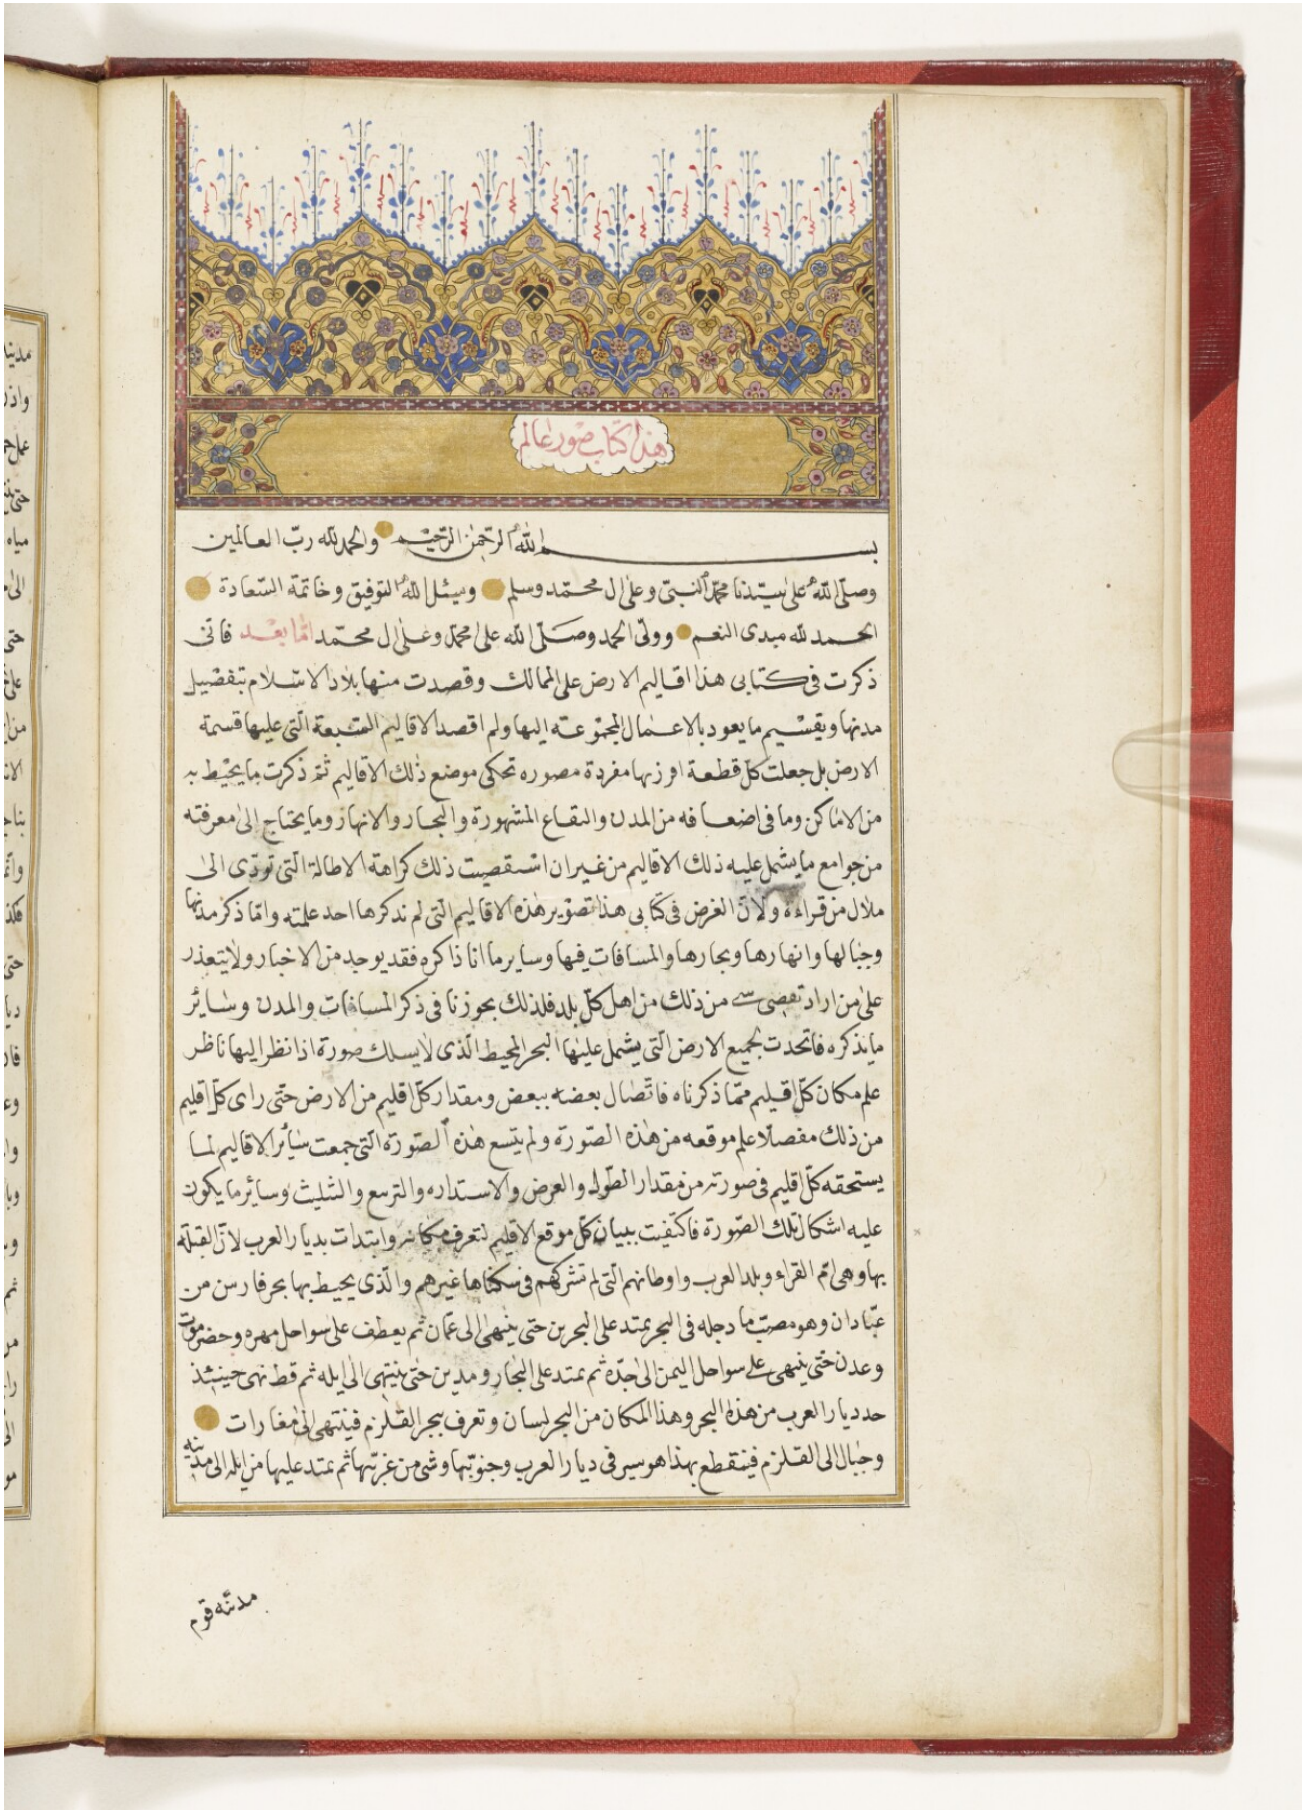 هذا كتاب صور عالم
بسم الله الرحمن الرحيم والحمد لله رب العالمين
وصلى الله على سيدنا محمد النبى وعلى ال محمد وسلم ونسئل الله التوفيق وخاتمة السعادة
الحمد لله مبدى النعم وولى الحمد وصلى الله على محمد وعلى ال محمد اما بعد فانى
ذكرت فى كتابى هذا اقاليم الارض على الممالك وقصدت منها بلاد الاسلام بتفصيل
مدنها وتقسيم ما يعود بالاعمال المجموعة اليها ولم اقصد الاقاليم السبعة التى عليها قسمة
الارض بل جعلت كل قطعة افرزتها مفردة مصوره تحكى موضع ذلك الاقاليم ثم ذكرت ما يحيط به
من الاماكن وما فى اضعافه من المدن والبقاع المشهورة والبحار والانهار وما يحتاج الى معرفته
من جوامع ما يشمل عليه ذلك الاقاليم من غير ان استقصيت ذلك كراهة الاطالة التى تودى الى
ملال من قراءة ولان الغرض فى كتابى هذا تصوير هذه الاقاليم التى لم نذكرها احد علمته واما ذكر مدنها
وجبالها وانهارها وبحارها والمسافات فيها وساير ما انا ذاكره فقد يوجد من الاخبار ولا يتعذر
على من اراد تقصى من ذلك من اهل كل بلد فلذلك تجوزنا فى ذكر المسافات والمدن وسائر
ما يذكره فاتخدت لجميع الارض التى يشمل عليها البحر المحيط الذى لا يسلك صورة اذا نظر اليها ناظر
علم مكان كل اقليم مما ذكرناه فاتصال بعضه ببعض ومقدار كل اقليم من الارض حتى راى كل اقليم
من ذلك مفصلا علم موقعه من هذه الصورة ولم يتسع هذه الصورة التى جمعت سائر الاقاليم لما
يستحقه كل اقليم فى صورته من مقدار الطول والعرض والاستداره والتربيع والتثليث وسائر ما يكون
عليه اشكال تلك الصورة فاكتفيت ببيان كل موقع الاقليم لتعرف مكانه وابتدات بديار العرب لان القبلة
بها وهى ام القراء وبلد العرب واوطانهم التى لم تشركهم فى سكناها غيرهم والذى يحيط بها بحر فارس من
عبادان وهو مصب ما دجله فى البحر يمتد على البحرين حتى ينتهى الى عمان ثم يعطف على سواحل مهره وحضرموت
وعدن حتى ينتهى على سواحل اليمن الى جدة ثم يمتد على الجار ومدين حتى ينتهى الى ايله ثم قط نهى حينئذ
حد ديار العرب من هذه البحر وهذا المكان من البحر لسان وتعرف ببحر القلزم فينتهى الى مغارات
وجبال الى القلزم فينقطع بهذا هو سير فى ديار العرب وجنوبها وشى من غربتها ثم يمتد عليها من ايله الى مدينه
مدينه قوم